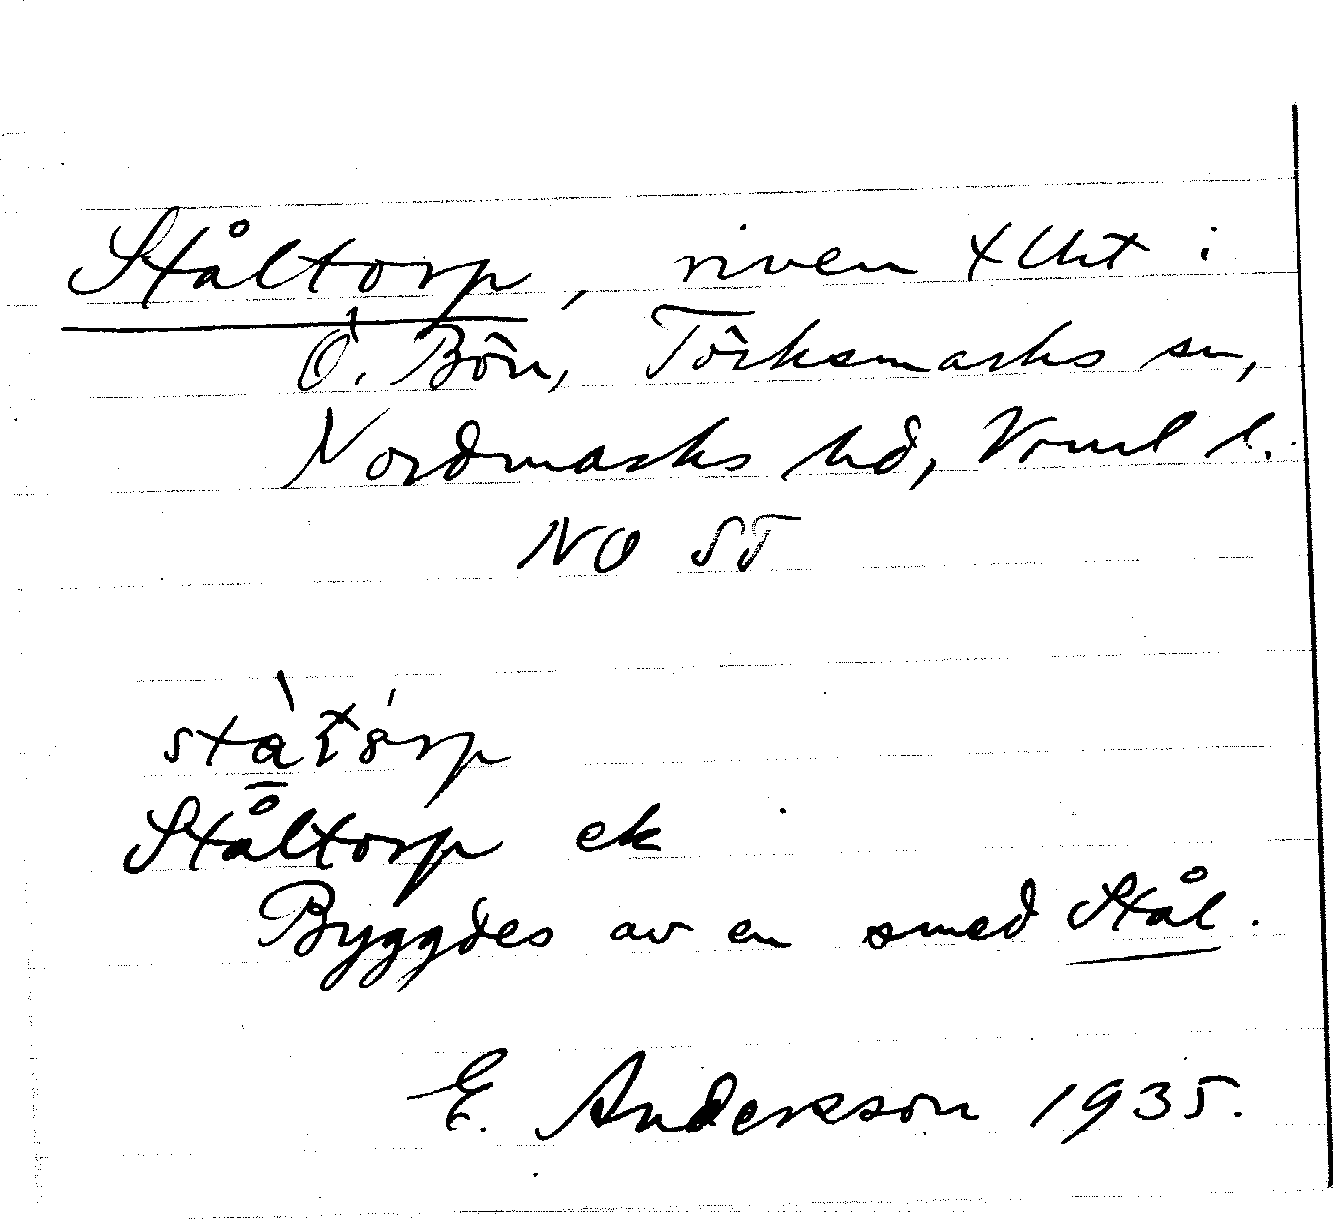 Ståltorp, riven tlht i
Ö. Bön, Töcksmarks sn,
Nordmarks hd, Vrml l.
NO ST
Ståltorp ek
Byggdes av en smed Stål.
E. Andersson 1935.